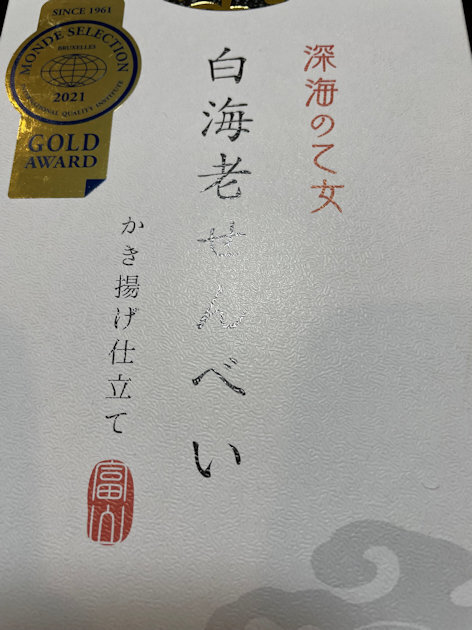 SINCE 1961
MONDE SELECTION
BRUXELLES
2021
INTERNATIONAL QUALITY INSTITUTE
GOLD
AWARD
深海の乙女
白海老せんべい
かき揚げ仕立て
富山